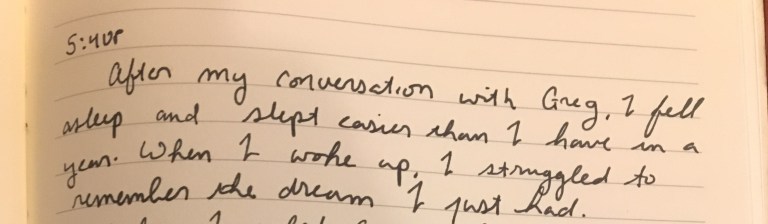 5:40P
After my conversation with Greg, I fell
asleep and slept easier than I have in a
year. When I woke up, I struggled to
remember the dream I just had.